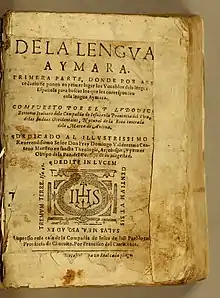 DE LA LENGVA
AYMARA.
PRIMERA PARTE, DONDE POR A
se ponen en primer lugar los Vocablos de la lengua
Española para buscar los que les corresponden
en la lengua Aymara.
COMPVESTO POR EL P. LVDOVICO
Bertonio Italiano de la Compañia de Iesus en la Prouincia del Piru,
de las Indias Occidentales, Natural de la
Marca de Ancona.
DEDICADO AL ILLVSTRISSIMO Y
Reuerendissimo Señor Don Fray Domingo Valderrama Cen
teno Maestro en Sancta Theologia, Arçobispo, y primer
Obispo de la Paz, del Consejo de su Magestad.
DEDI TE IN LVCEM
GENTIVM VT SIS
SALVS MEA VSQVE AD
EXTREMVM TERRAE
IHS
Impresso en la casa de la Compañia de Iesus de Iuli Pueblo en la
Prouincia de Chucuito. Por Francisco del Canto. 1612.